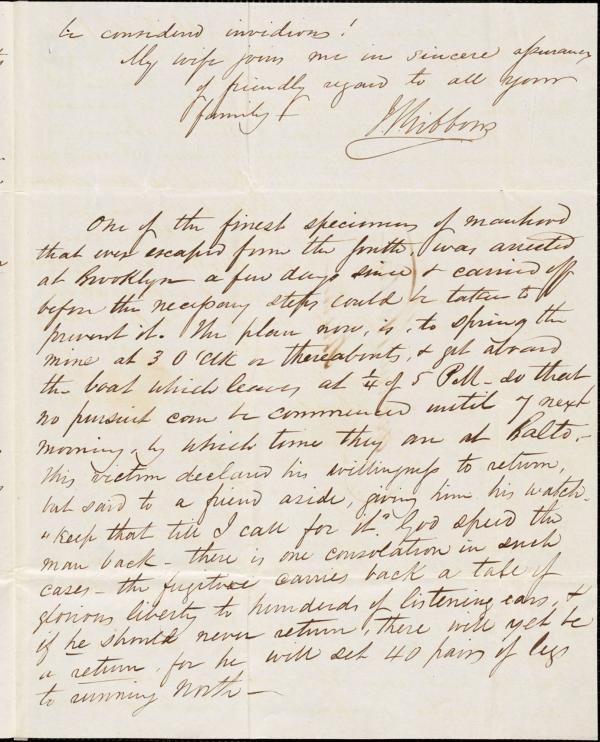 be considered invidious!
My wife joins me in sincere assurance
of friendly regard to all your
family
J S Gibbons
One of the finest specimens of manhood
that ever escaped from the South, was arrested
at Brooklyn a few days since & carried off
before the necessary steps could be taken to
prevent it. The plan now, is, to spring the
mine at 3 O Clk or thereabouts, & get aboard
the boat which leaves at ¼ of 5 P.M. - so that
no pursuit can be commenced until 7 next
morning, by which time they are at Balto. -
This victim declared his willingness to return,
but said to a friend aside, giving him his watch -
"Keep that till I call for it." God speed the
man back - there is one consolation in such
cases - the fugitive carries back a tale of
glorious liberty to hundreds of listening ears, &
if he should never return, there will yet be
a return, for he will set 40 pairs of legs
to running North -